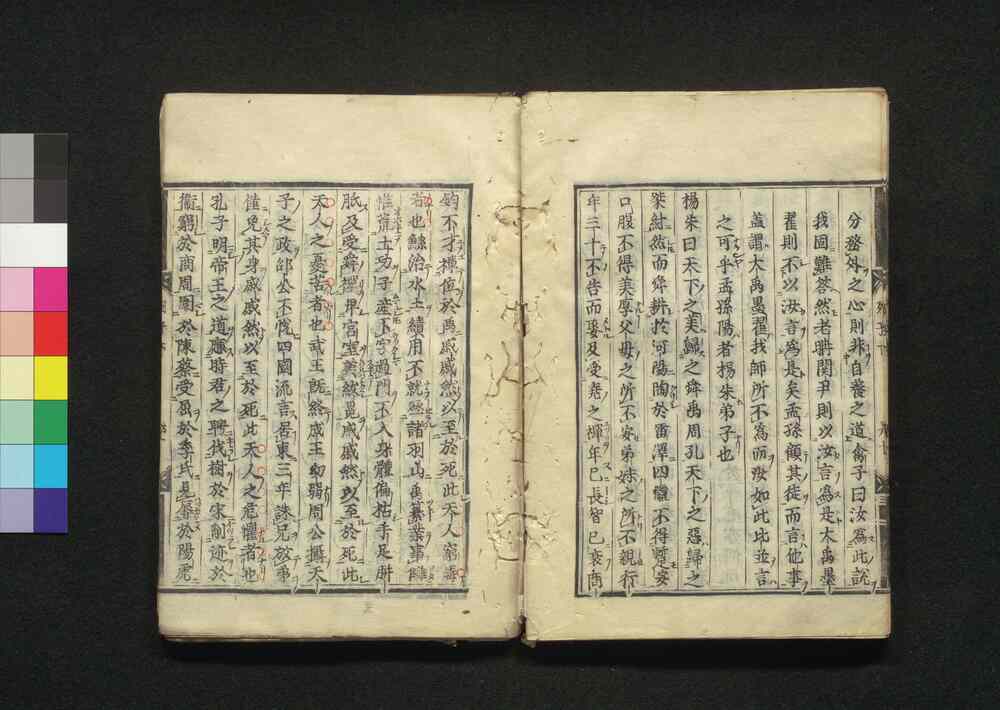 分務外之心則非自養之道禽子曰汝爲此說
我固難答然老聃関尹則以汝言爲是大禹墨
翟則不以汝言爲是矣孟孫顧其徒而言他事
蓋謂大禹墨翟我師所不爲而汝如此比並言
之可乎孟孫陽者楊朱弟子也
楊朱曰天下之美歸之舜禹周孔天下之惡歸之
桀紂然而舜耕於河陽陶於雷澤四體不得蹔安
口腹不得美厚父母之所不安弟妹之所不親行
年三十不告而娶及受堯之禪年已長智已衰商
鈞不才禪位於禹戚戚然以至於死此天人窮毒
者也鯀治水土績用不就殛諸羽山禹纂業事讎
惟荒土功子產不字過門不入身體偏枯手足胼
胝及受舜禪卑宮室美紱冕戚戚然以至於死此
天人之憂苦者也武王既然成王幼弱周公攝天
子之政邵公不悅四國流言居東三年誅兄放弟
僅免其身戚戚然以至於死此天人之危懼者也
孔子明帝王之道應時君之聘伐樹於宋削迹於
衞窮於商周圍於陳蔡受屈於季氏見辱於陽虎